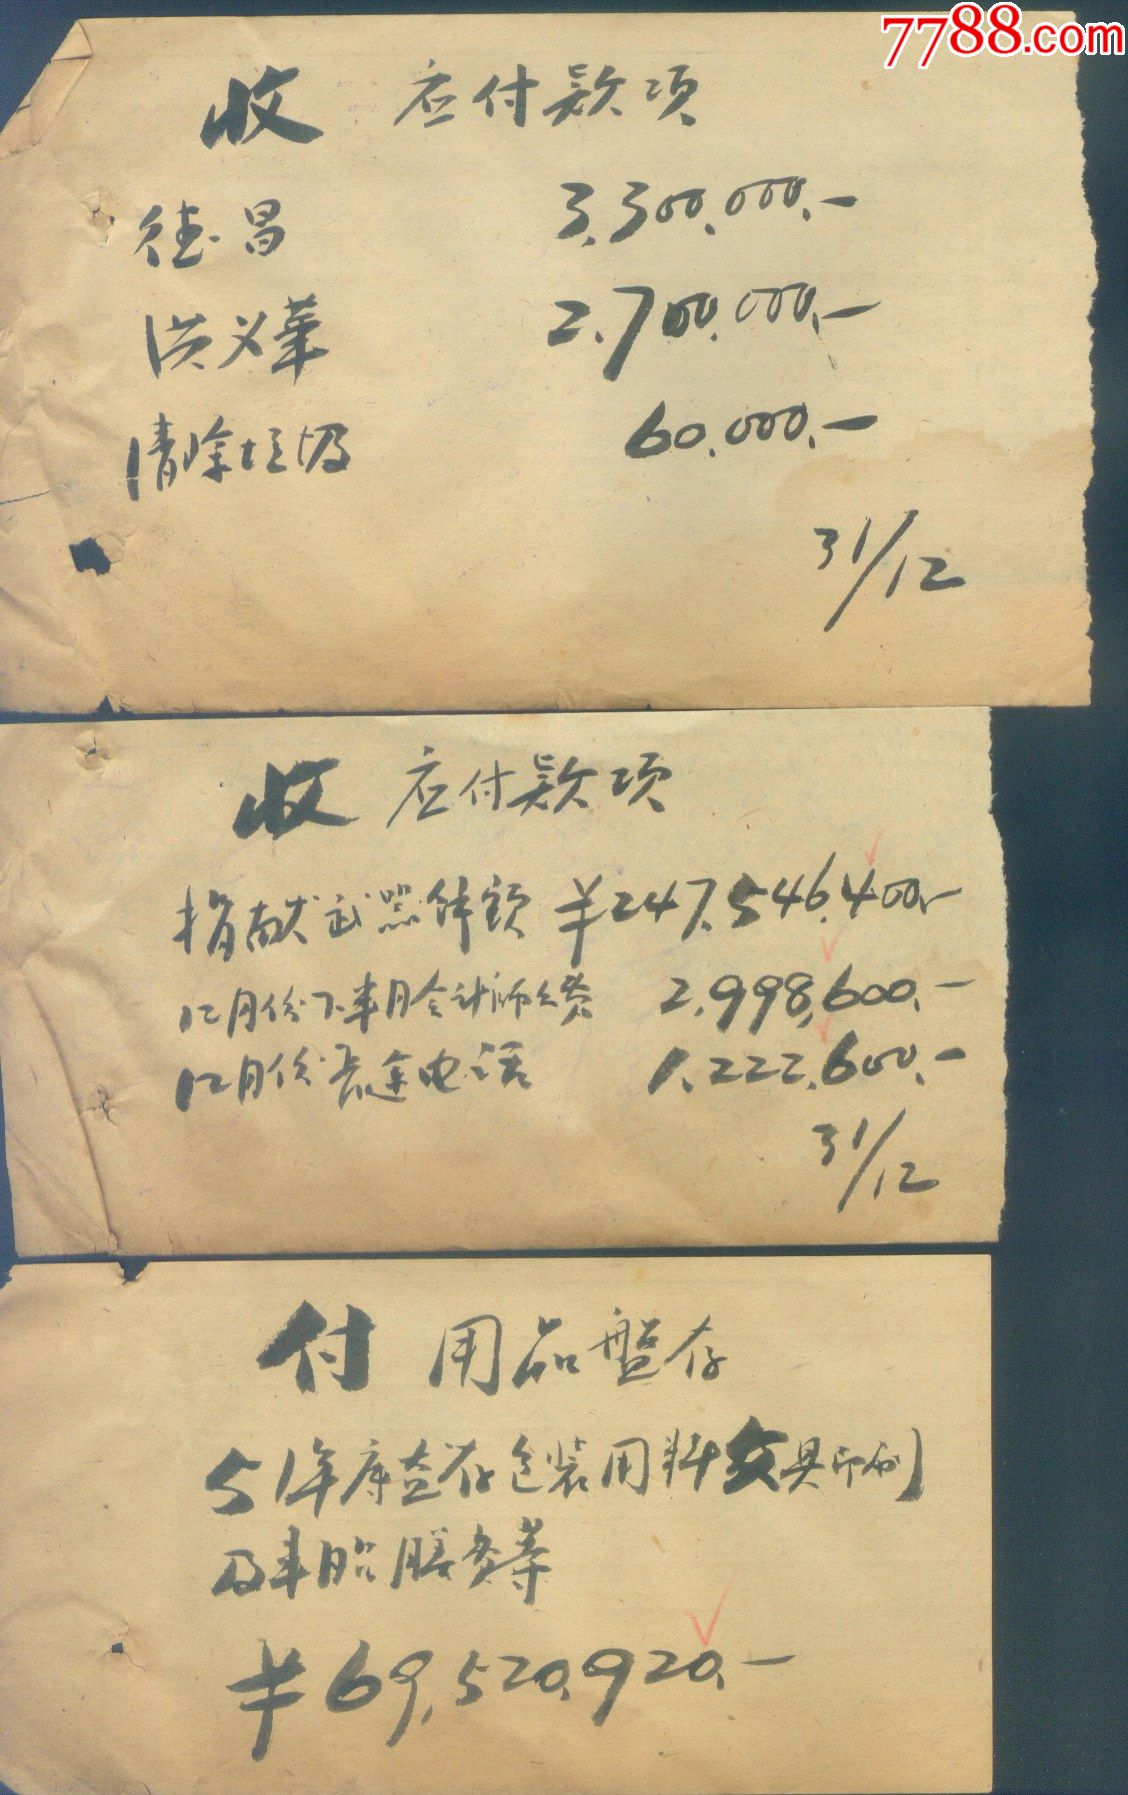 7788.com
收 应付款项
德昌 3,300,000.-
洪义華 2,700,000.-
清除垃圾 60,000.-
31/12
收 应付款项
捐献武器余额 ¥247,546,400.-
12月份下半月会计师公费 2,998,600.-
12月份長途电话 1,222,600.-
31/12
付 用品盤存
51年底盘存包装用料文具印刷
及车胎膠
¥69,520,920.-